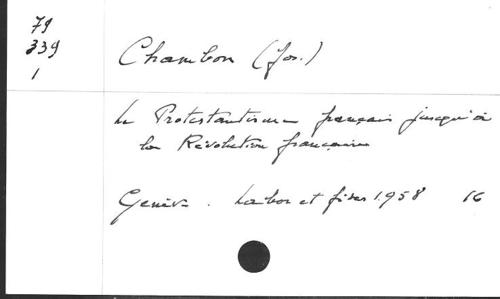 79
339
1
Chambon (Jos.)
Le Protestantisme français jusqu'à
la Révolution française
Genève. Labor et fides 1958 16